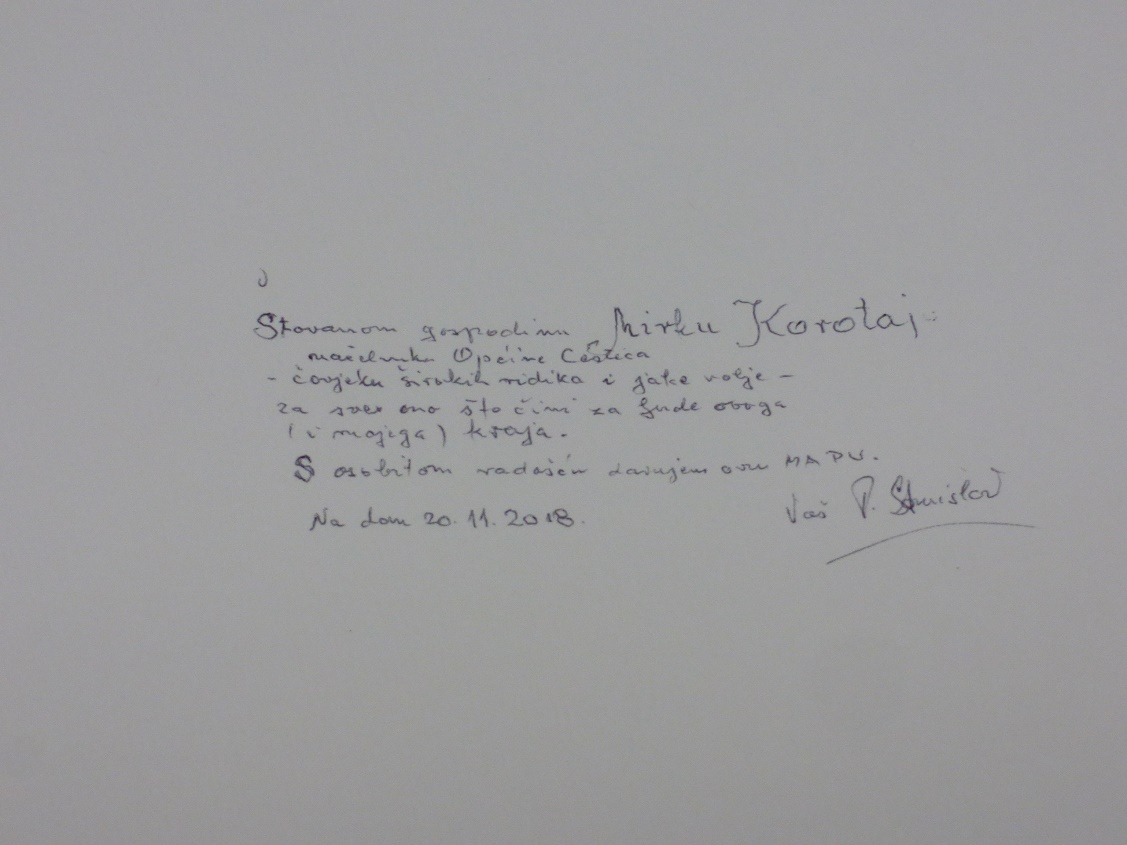 Štovanom gospodinu Mirku Korotaj:
načelniku Općine Cestica
- čovjeku širokih vidika i jake volje -
za sve ono što čini za ljude ovoga
(i mojega) kraja.
S osobitom radošću darujem ovu MAPU.
Na dom 20. 11. 2018.
Vaš P. Stanislav